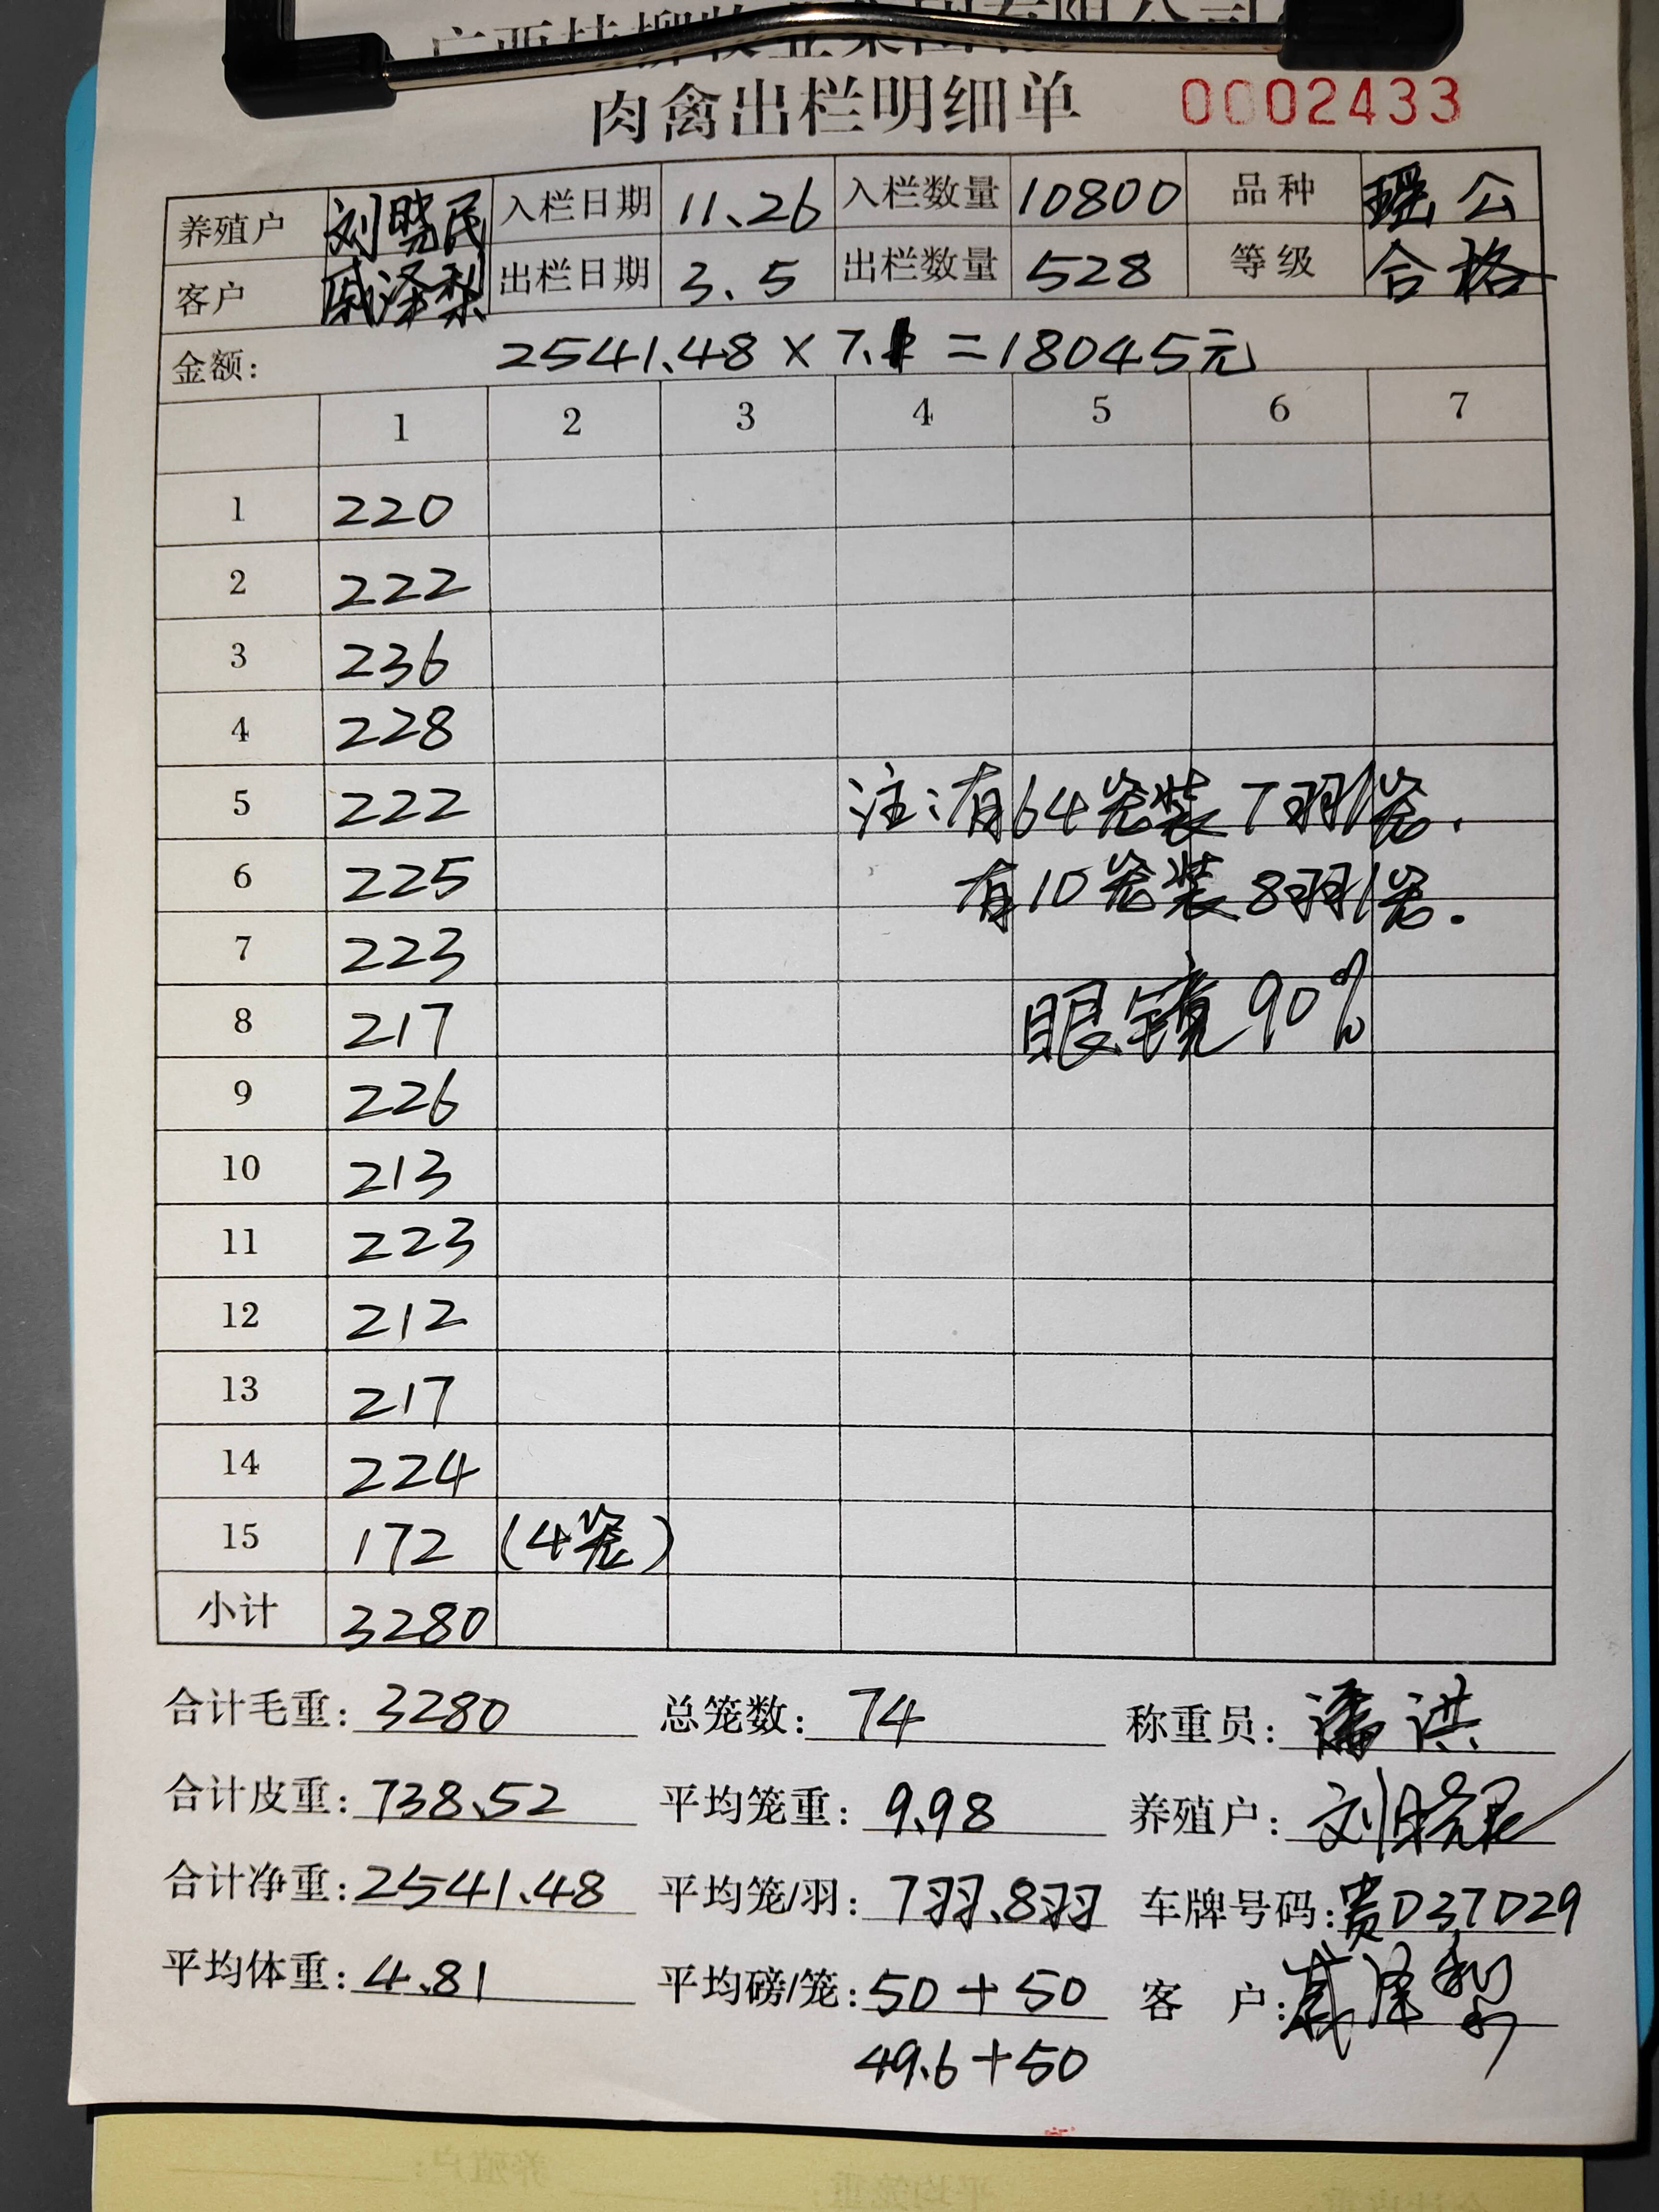 肉禽出栏明细单 0002433
养殖户 刘晓民 入栏日期 11.26 入栏数量 10800 品种 瑶公
客户 戚泽黎 出栏日期 3.5 出栏数量 528 等级 合格
金额: 2541.48 × 7.1 =18045元
1 2 3 4 5 6 7
1 220
2 222
3 236
4 228
5 222 注:有64笼装7羽/笼.
6 225 有10笼装8羽/笼.
7 223
8 217 眼镜90%
9 226
10 213
11 223
12 212
13 217
14 224
15 172 (4笼)
小计 3280
合计毛重: 3280 总笼数: 74 称重员: 潘洪
合计皮重: 738.52 平均笼重: 9.98 养殖户: 刘晓民
合计净重: 2541.48 平均笼/羽: 7羽.8羽 车牌号码: 贵D37D29
平均体重: 4.81 平均磅/笼: 50+50 客户:
49.6+50